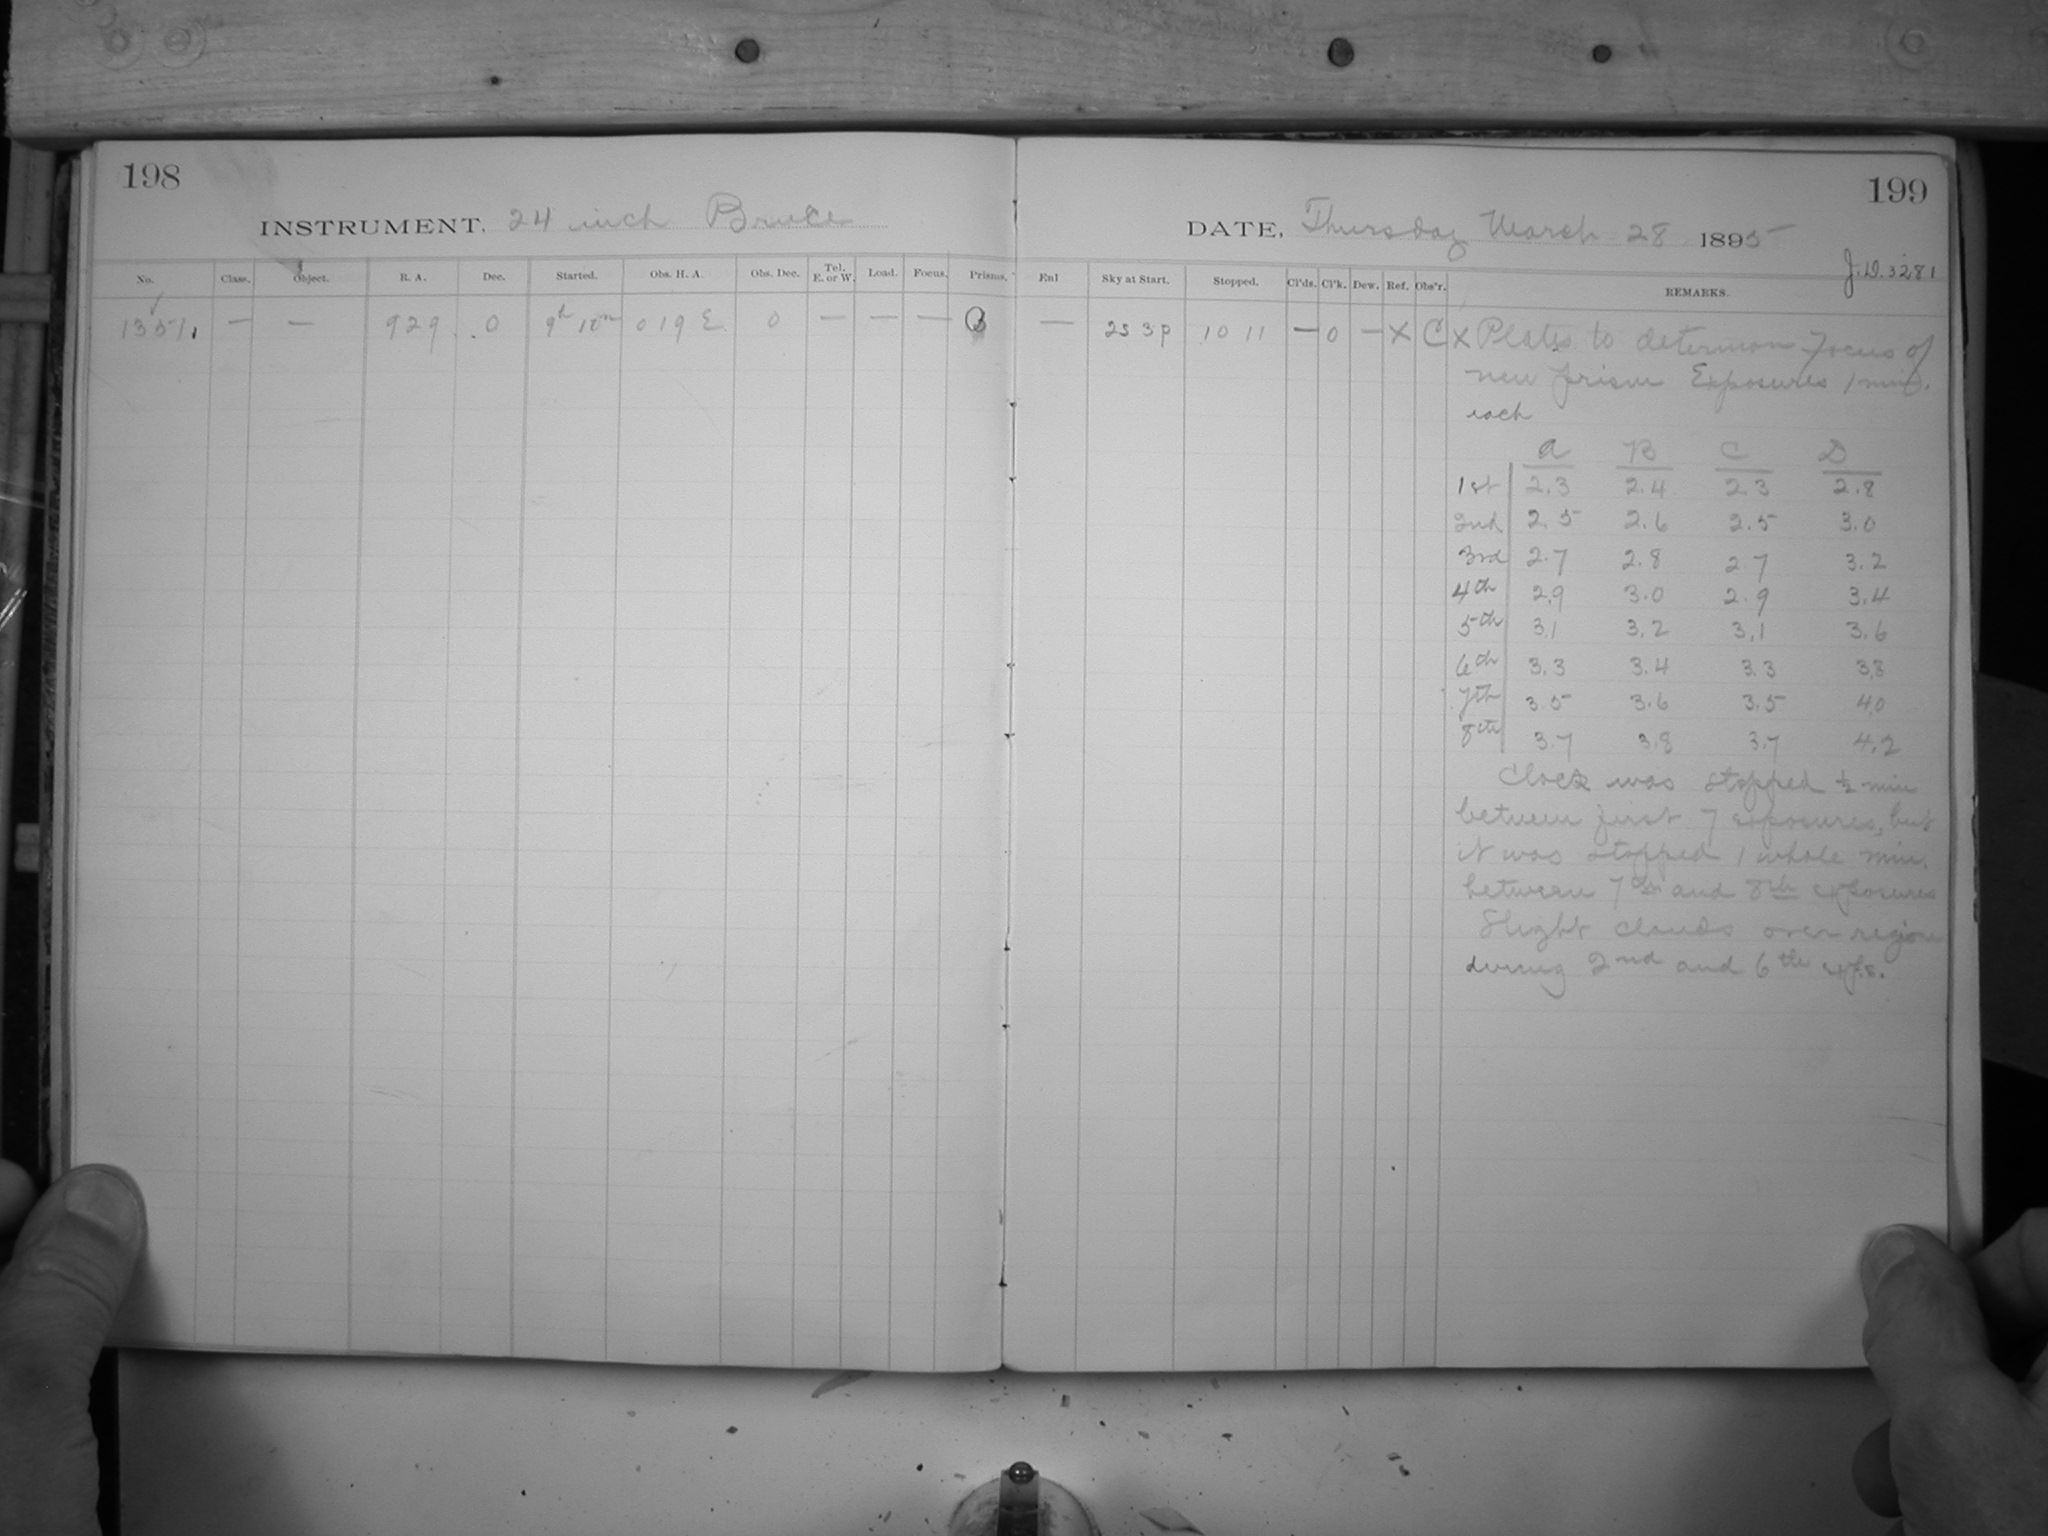 198
199
INSTRUMENT. 24 inch Bruce
DATE, Thursday March 28 1895
J.D. 3281
No. Class. Object. R. A. Dec. Started. Obs. H. A. Obs. Dec. Tel. E. or W. Load. Focus. Prisms. Enl Sky at Start. Stopped. Cl'ds. Cl'k. Dew. Ref. Obs'r. REMARKS.
1351 — — 9 29 0 0 19 E 0 — — — — 2S 3p 10 11 — 0 — X C X Plates to determine Focus of
new prism Exposures 1 min.
each
A B C D
1st 2.3 2.4 2.3 2.8
2nd 2.5 2.6 2.5 3.0
3rd 2.7 2.8 2.7 3.2
4th 2.9 3.0 2.9 3.4
5th 3.1 3.2 3.1 3.6
6th 3.3 3.4 3.3 3.8
7th 3.5 3.6 3.5 4.0
8th 3.7 3.8 3.7 4.2
Clock was stopped ½ min
between first 7 exposures, but
it was stopped 1 whole min.
between 7th and 8th exposures
Slight clouds over region
during 2nd and 6th exps.